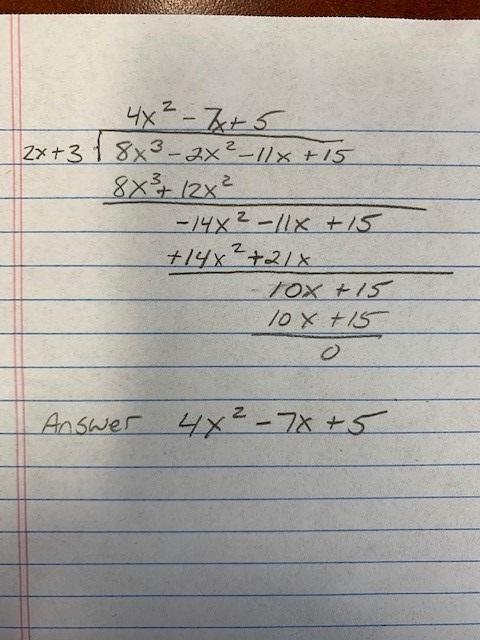 4x² - 7x + 5
2x + 3 8x³ - 2x² - 11x + 15
8x³ + 12x²
-14x² - 11x + 15
+14x² + 21x
10x + 15
10x + 15
0
Answer 4x² - 7x + 5